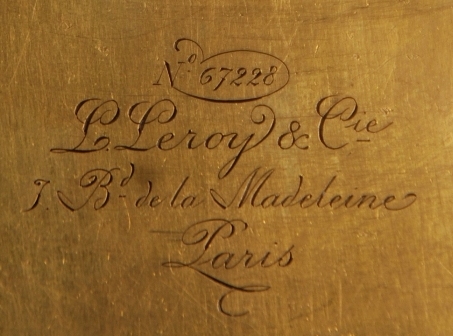 No 67228
L. Leroy & Cie
7. Bd de la Madeleine
Paris